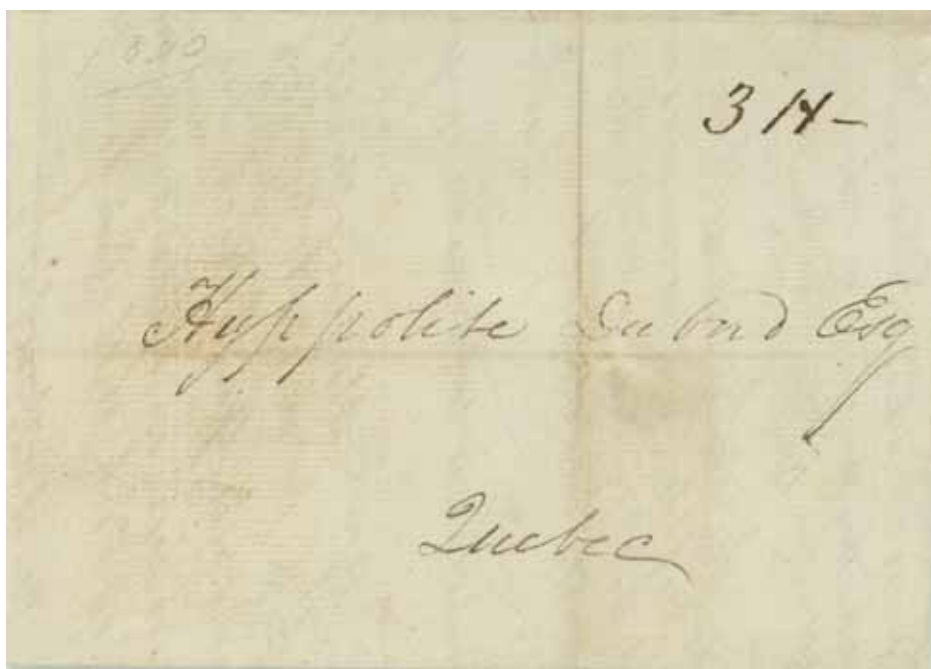 1840
3 H-
Hyppolite Dubord Esq
Quebec